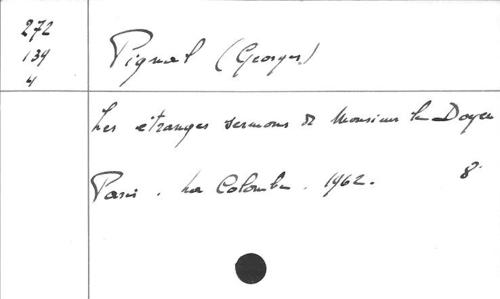 272
139
4
Pignal (Georges)
Les étranges sermons de Monsieur le Doyen
Paris. La Colombe. 1962. 8°